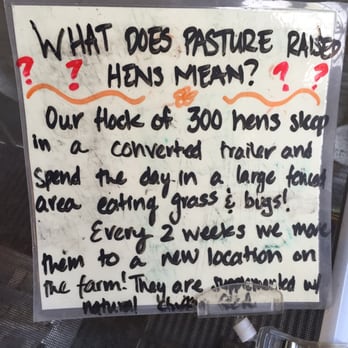 WHAT DOES PASTURE RAISED
? ? HENS MEAN? ? ?
Our flock of 300 hens sleep
in a converted trailer and
spend the day in a large fenced
area eating grass & bugs!
Every 2 weeks we move
them to a new location on
the farm! They are supplemented w/
natural